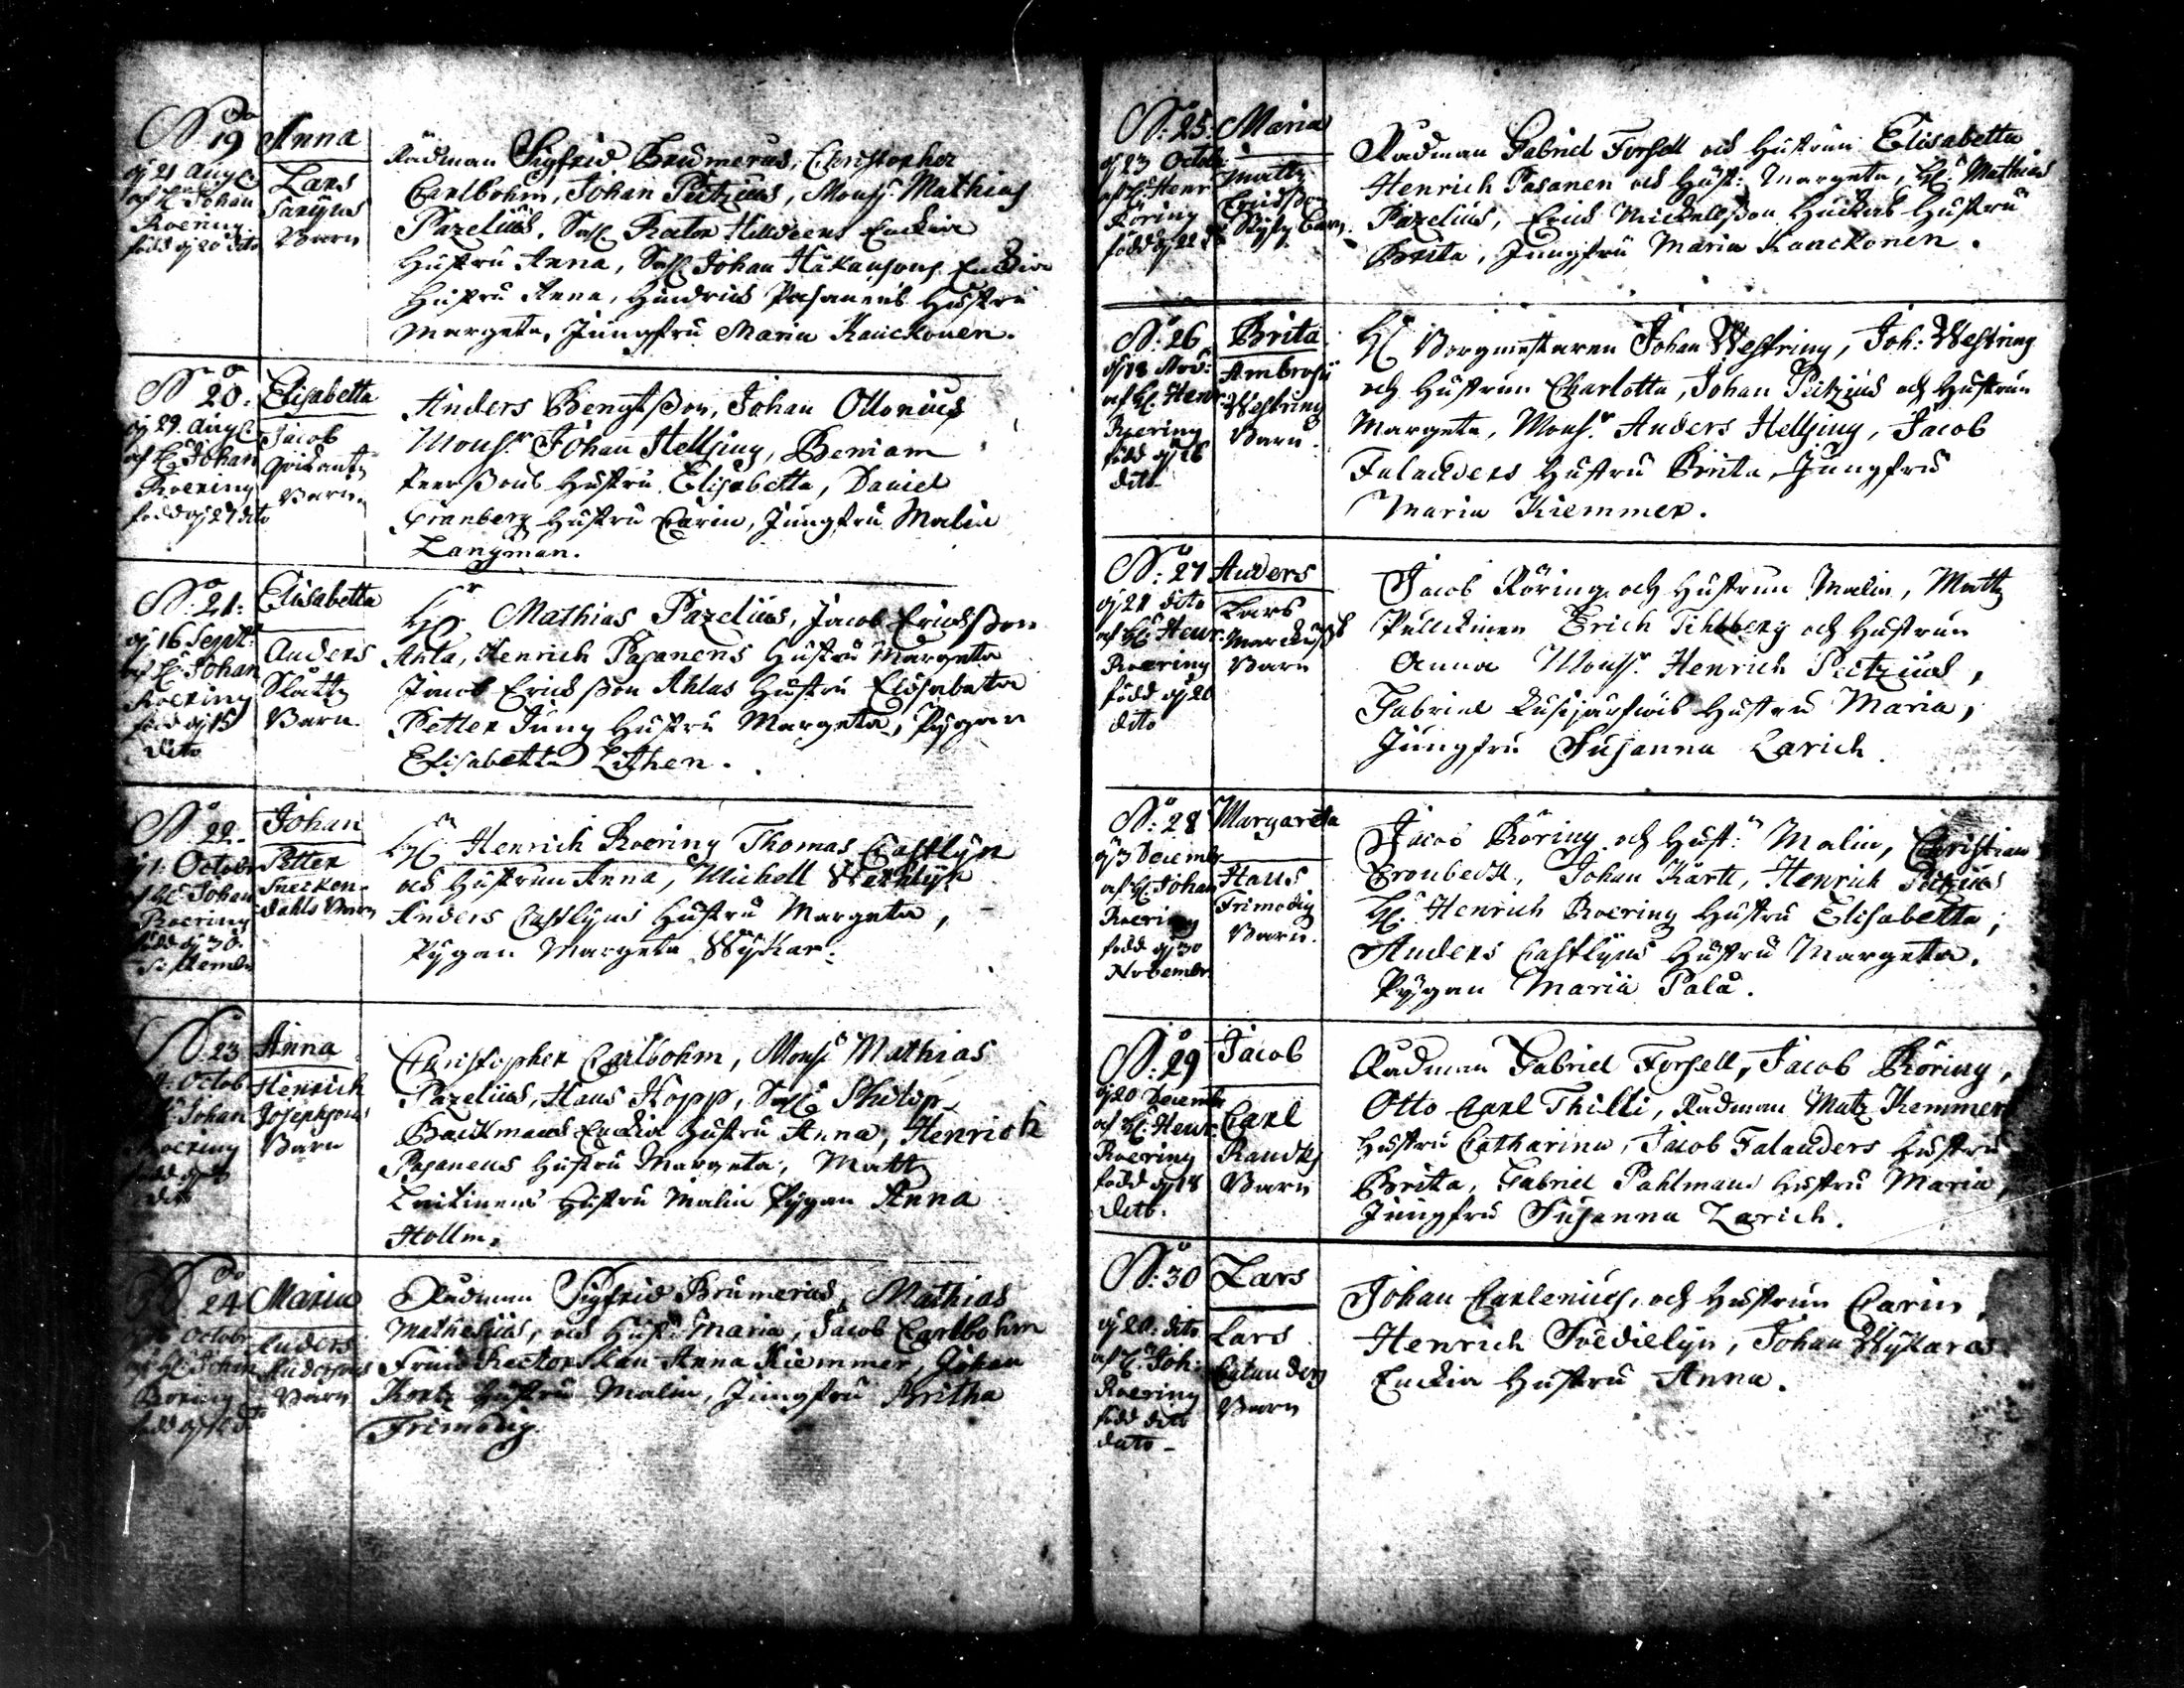 No 19
dj 21 Aug
af H Johan
Roering
född dj 20 dito
Anna
Lars
Barn
Rådman Sigfrid Brumerus, Christopher
Carlbohm, Johan Pitzius, Monsr Mathias
Pazelius, Sahl Enckia
Hustru Anna, Sahl Johan Håkansons Enckia
Hustru Anna, Hindrich Pasanens Hustru
Margeta, Jungfru Maria Kauckonen.
No 20:
dj 29. Aug
af H Johan
Roering
född dj 27 dito
Elisabetta
Jacob
Barn
Anders Bengtsson, Johan Ollonius
Monsr. Johan Hellsing, Beniam
Peerssons Hustru Elisabetta, Daniel
Granberg Hustru Carin, Jungfru Malin
Langman.
No: 21:
dj 16 Septr
af H Johan
Roering
född dj 15
dito
Elisabetta
Anders
Slåtte
Barn.
Hr Mathias Pazelius, Jacob Ericksson
Ahla, Henrich Pasanens Hustru Margeta
Jacob Ericksson Ahlas Hustru Elisabeta
Petter Jung Hustru Margeta, Pygan
Elisabetta Lithen.
No 22.
dj 1. Octobr
af H. Johan
Roering
född dj 30.
Septembr
Johan
Petter
Snecken-
dahls Barn
Hr Henrich Roering Thomas Castlyn
och Hustrun Anna, Michell
Anders Castlyns Hustru Margeta,
Pygan Margeta Wykar.
No. 23
Octob
Johan
Roering
dito
Anna
Henrich
Josephsons
Barn
Christopher Carlbohm, Monsr Mathias
Pazelius, Hans Hopp, Sahl Philip
Backmans Enckia Hustru Anna, Henrich
Pasanens Hustru Margeta, Matts
Laitinens Hustru Malin Pygan Anna
Hollm.
No. 24
Octobr
af H. Johan
Roering
Maria
Anders
Andersons
Barn
Rådman Sigfrid Brumerus, Mathias
Mathesius, och Hust: Maria, Jacob Carlbohm
Fru Rectorskan Anna Kiemmer, Johan
Kortz Hustru Malin, Jungfru Britha
Frimodig.
No: 25:
dj 23 Octob
af H. Henr
Röring
född dj 22
Maria
Matts
Ericksson
Barn.
Rådman Gabriel Forsell och Hustrun Elisabetta
Henrich Pasanen och Hust: Margeta, H. Mathias
Pazelius, Erick Mickellsson Huckas Hustru
Brita, Jungfru Maria Kauckonen.
No: 26
dj 18 Nov:
af H. Henr
Roering
född dj 16
dito
Brita
Ambrosii
Westring
Barn.
H Borgmestaren Johan Westring, Joh: Westring
och Hustrun Charlotta, Johan Pitzius och Hustrun
Margeta, Monsr. Anders Hellsing, Jacob
Falanders Hustru Brita, Jungfru
Maria Kiemmer.
No: 27
dj 21 dito
af H. Henr.
Roering
född dj 20
dito
Anders
Lars
Barn
Jacob Röring och Hustrun Malin, Matts
Pullckinen Erich Tihlberg och Hustrun
Anna Monsr. Henrich Pitzius,
Gabriel Hustru Maria,
Jungfru Susanna Zarich.
No: 28
dj 3 Decembr
af H. Johan
Roering
född dj 30
Novembr
Margareta
Hans
Frimodig
Barn.
Jacob Röring och Hust:n Malin, Christian
Bronbeck, Johan Kärtt, Henrich Pitzius
H. Henrich Roering Hustru Elisabetta,
Anders Castlyns Hustru Margeta.
Pygan Maria Pala.
No: 29
dj 20 Decembr
af H. Henr.
Roering
född dj 18
dito.
Jacob
Carl
Barn
Rådman Gabriel Forsell, Jacob Röring,
Otto Carl Thilli, Rådman Matz Kemmers
Hustru Catharina, Jacob Falanders Hustru
Brita, Gabriel Pahlmans Hustru Maria,
Jungfru Susanna Zarich.
No: 30
dj 20. dito
af H. Joh:
Roering
född dito
dato.
Lars
Lars
Barn
Johan Carlenius, och Hustrun Carin,
Henrich Svedielyn, Johan Wykaras
Enckia Hustru Anna.